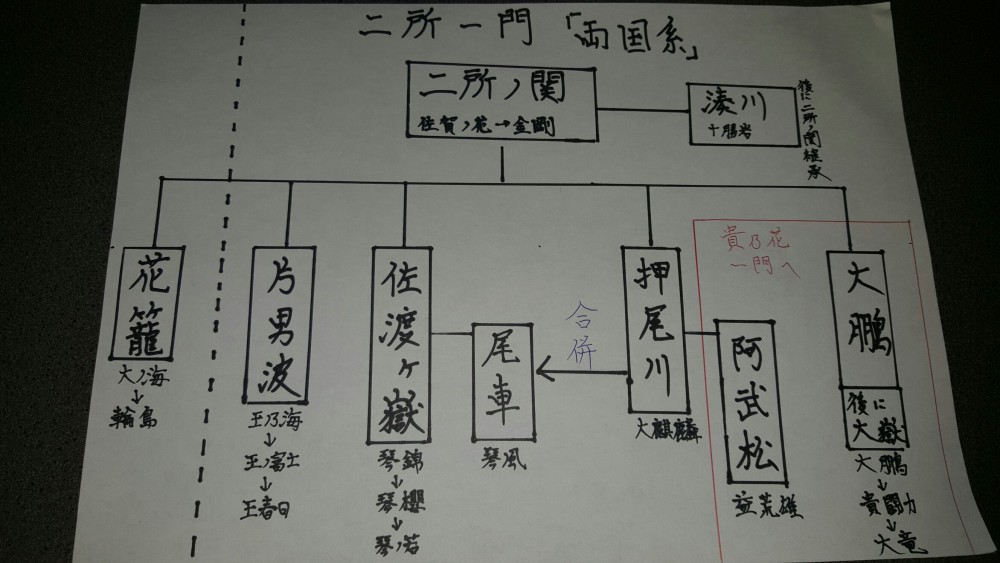 二所一門「両国系」
二所ノ関
佐賀ノ花→金剛
湊川
十勝岩
後に二所ノ関継承
花籠
大ノ海
↓
輪島
片男波
玉乃海
↓
玉ノ富士
↓
玉春日
佐渡ヶ嶽
琴錦
↓
琴櫻
↓
琴ノ若
尾車
琴風
合併
押尾川
大麒麟
貴乃花
一門へ
阿武松
益荒雄
大鵬
後に
大嶽
大鵬
↓
貴闘力
↓
大竜